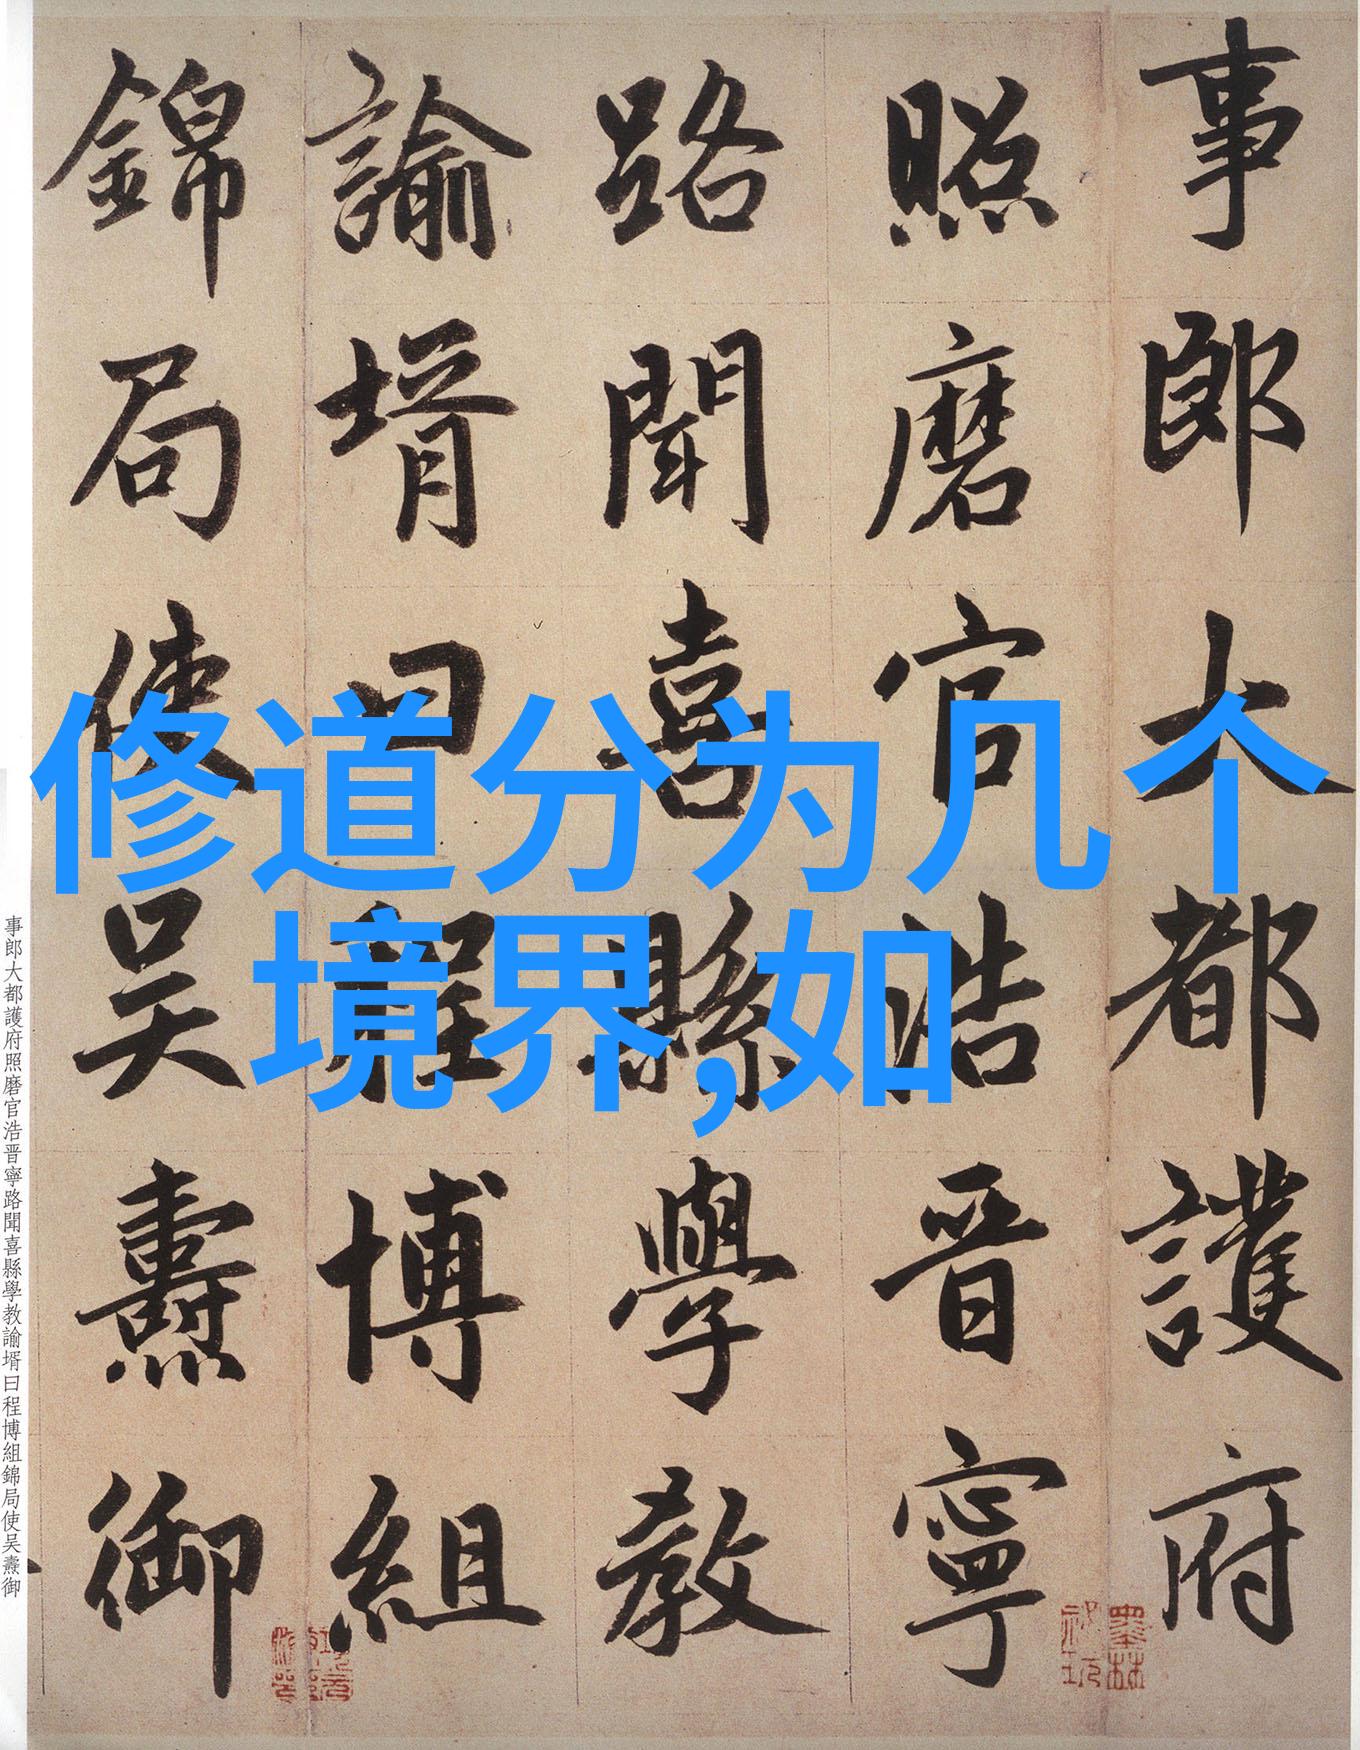 事郎大都護府
照磨官浩晋寧
路聞喜縣學教
諭壻曰程博組
錦局使吴燾御
修道分为几个
境界,如
事郎大都護府照磨官浩晋寧路聞喜縣學教諭壻曰程博組錦局使吴燾御
墨林
祕玩